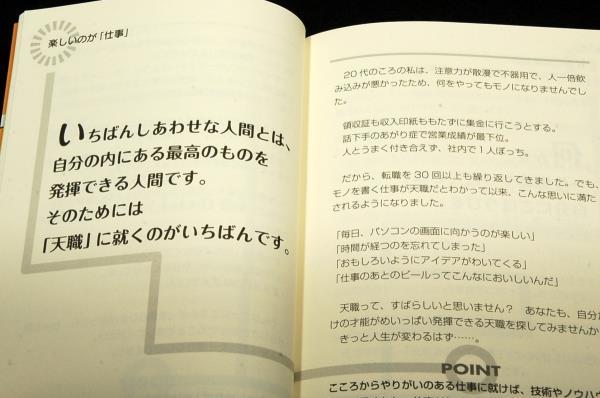 楽しいのが「仕事」
いちばんしあわせな人間とは、
自分の内にある最高のものを
発揮できる人間です。
そのためには
「天職」に就くのがいちばんです。
20代のころの私は、注意力が散漫で不器用で、人一倍飲
み込みが悪かったため、何をやってもモノになりませんでし
た。
領収証も収入印紙ももたずに集金に行こうとする。
話下手のあがり症で営業成績が最下位。
人とうまく付き合えず、社内で1人ぼっち。
だから、転職を30回以上も繰り返してきました。でも、
モノを書く仕事が天職だとわかって以来、こんな思いに満た
されるようになりました。
「毎日、パソコンの画面に向かうのが楽しい」
「時間が経つのを忘れてしまった」
「おもしろいようにアイデアがわいてくる」
「仕事のあとのビールってこんなにおいしいんだ」
天職って、すばらしいと思いません? あなたも、自分だ
けの才能がめいっぱい発揮できる天職を探してみませんか
きっと人生が変わるはず……。
POINT
こころからやりがいのある仕事に就けば、技術やノウハウ